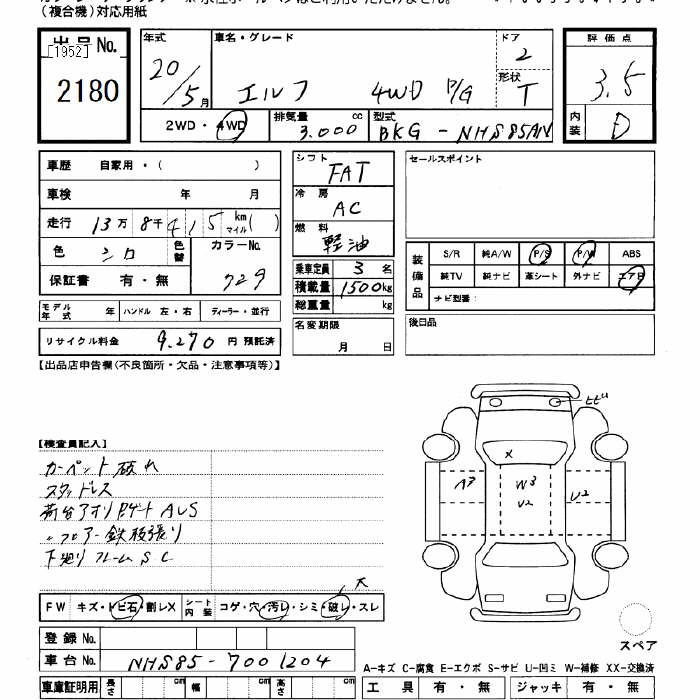 (複合機)対応用紙
出品No.
[1952]
2180
年式
20/5月
車名・グレード
エルフ 4WD P/G
ドア
2
形状
T
評価点
3.5
内装
D
2WD・4WD
排気量
3.000 cc
型式
BKG-NHS85AN
車歴 自家用・( )
車検 年 月
走行 13万8千415 km マイル( )
色 シロ
色替
カラーNo.
729
保証書 有・無
モデル年式 年 ハンドル 左・右 ディーラー・並行
リサイクル料金 9.270 円 預託済
シフト
FAT
冷房
AC
燃料
軽油
乗車定員 3 名
積載量 1500 kg
総重量 kg
名変期限
月 日
セールスポイント
装備品
S/R 純A/W P/S P/W ABS
純TV 純ナビ 革シート 外ナビ エアB
ナビ型番:
後日品
【出品店申告欄(不良箇所・欠品・注意事項等)】
【検査員記入】
カーペット破れ
スタッドレス
荷台アオリ Pゲート AUS
〃フロアー鉄板張り
下廻りフレームSC
ヒビ
X
A3
W3
U2
U2
大
FW キズ・トビ石・割レX
シート内装 コゲ・穴・汚レ・シミ・破レ・スレ
登録No.
車台No. NHS85-7001204
車庫証明用 長さ cm 幅 cm 高さ cm
スペア
A-キズ C-腐食 E-エクボ S-サビ U-凹ミ W-補修 XX-交換済
工具 有・無 ジャッキ 有・無